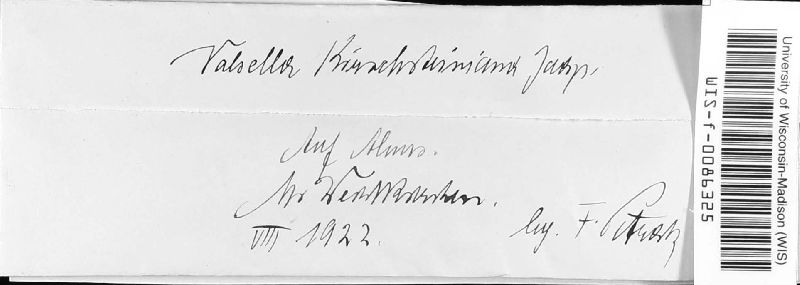 Valsella Kirschsteiniana Jaap.
Auf Alnus.
VIII 1922.
leg. F. Petrak
WIS-f-0086325
University of Wisconsin-Madison (WIS)